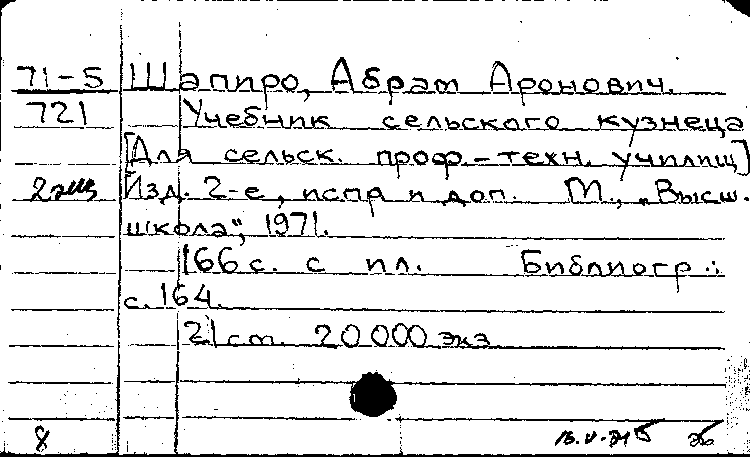 71-5 Шапиро, Абрам Аронович.
721 Учебник сельского кузнеца
[Для сельск. проф.-техн. училищ]
2 экз Изд. 2-е, испр и доп. М., „Высш.
школа", 1971.
166 с. с ил. Библиогр.:
с. 164.
21 см. 20 000 экз
8 13.V-71